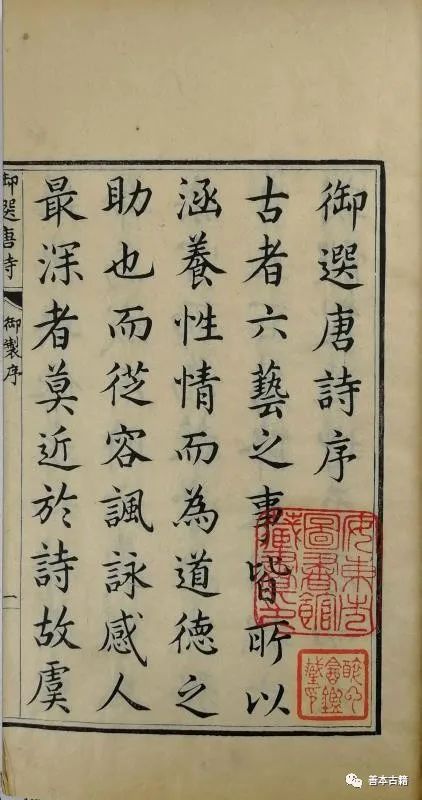 御選唐詩序
古者六藝之事皆所以
涵養性情而為道德之
助也而從容諷詠感人
最深者莫近於詩故虞
御選唐詩
御製序
一
圖書館
善本古籍